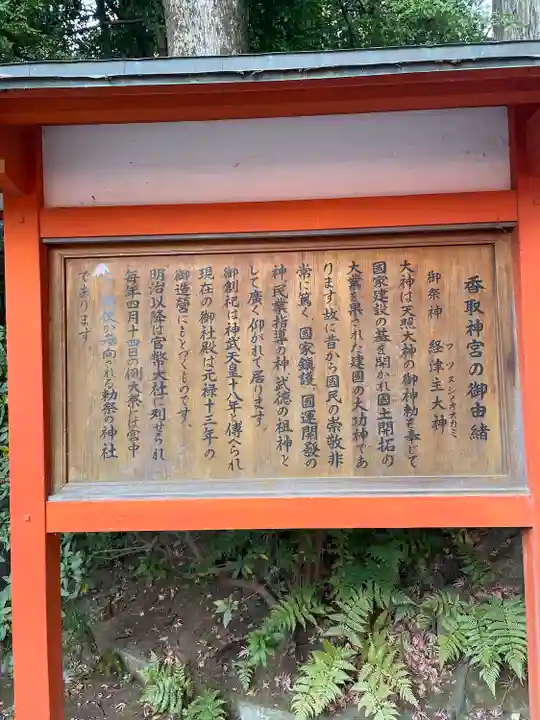 香取神宮の御由緒
御祭神　経津主大神
フツヌシノオオカミ
大神は天照大神の御神勅を奉じて
國家建設の基を開かれ國土開拓の
大業を果された建国の大功神であ
ります故に昔から國民の崇敬非
常に篤く、国家鎮護、國運開發の
神、民業指導の神、武徳の祖神と
して廣く仰がれて居ります。
御創祀は神武天皇十八年と傳へられ
現在の御社殿は元禄十三年の
御造營にもとづくものです。
明治以降は官幣大社に列せられ
毎年四月十四日の例大祭には宮中
使が参向される勅祭の神社
であります